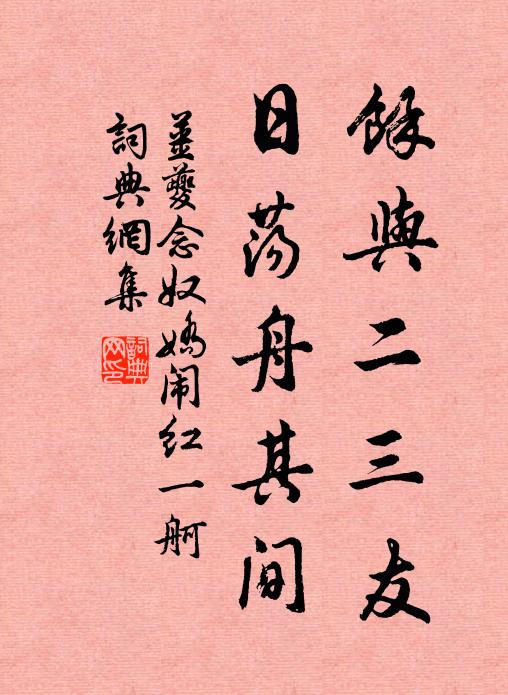 餘與二三友
日蕩舟其間
姜夔念奴嬌闹红一舸
詞典網集
詞典网印